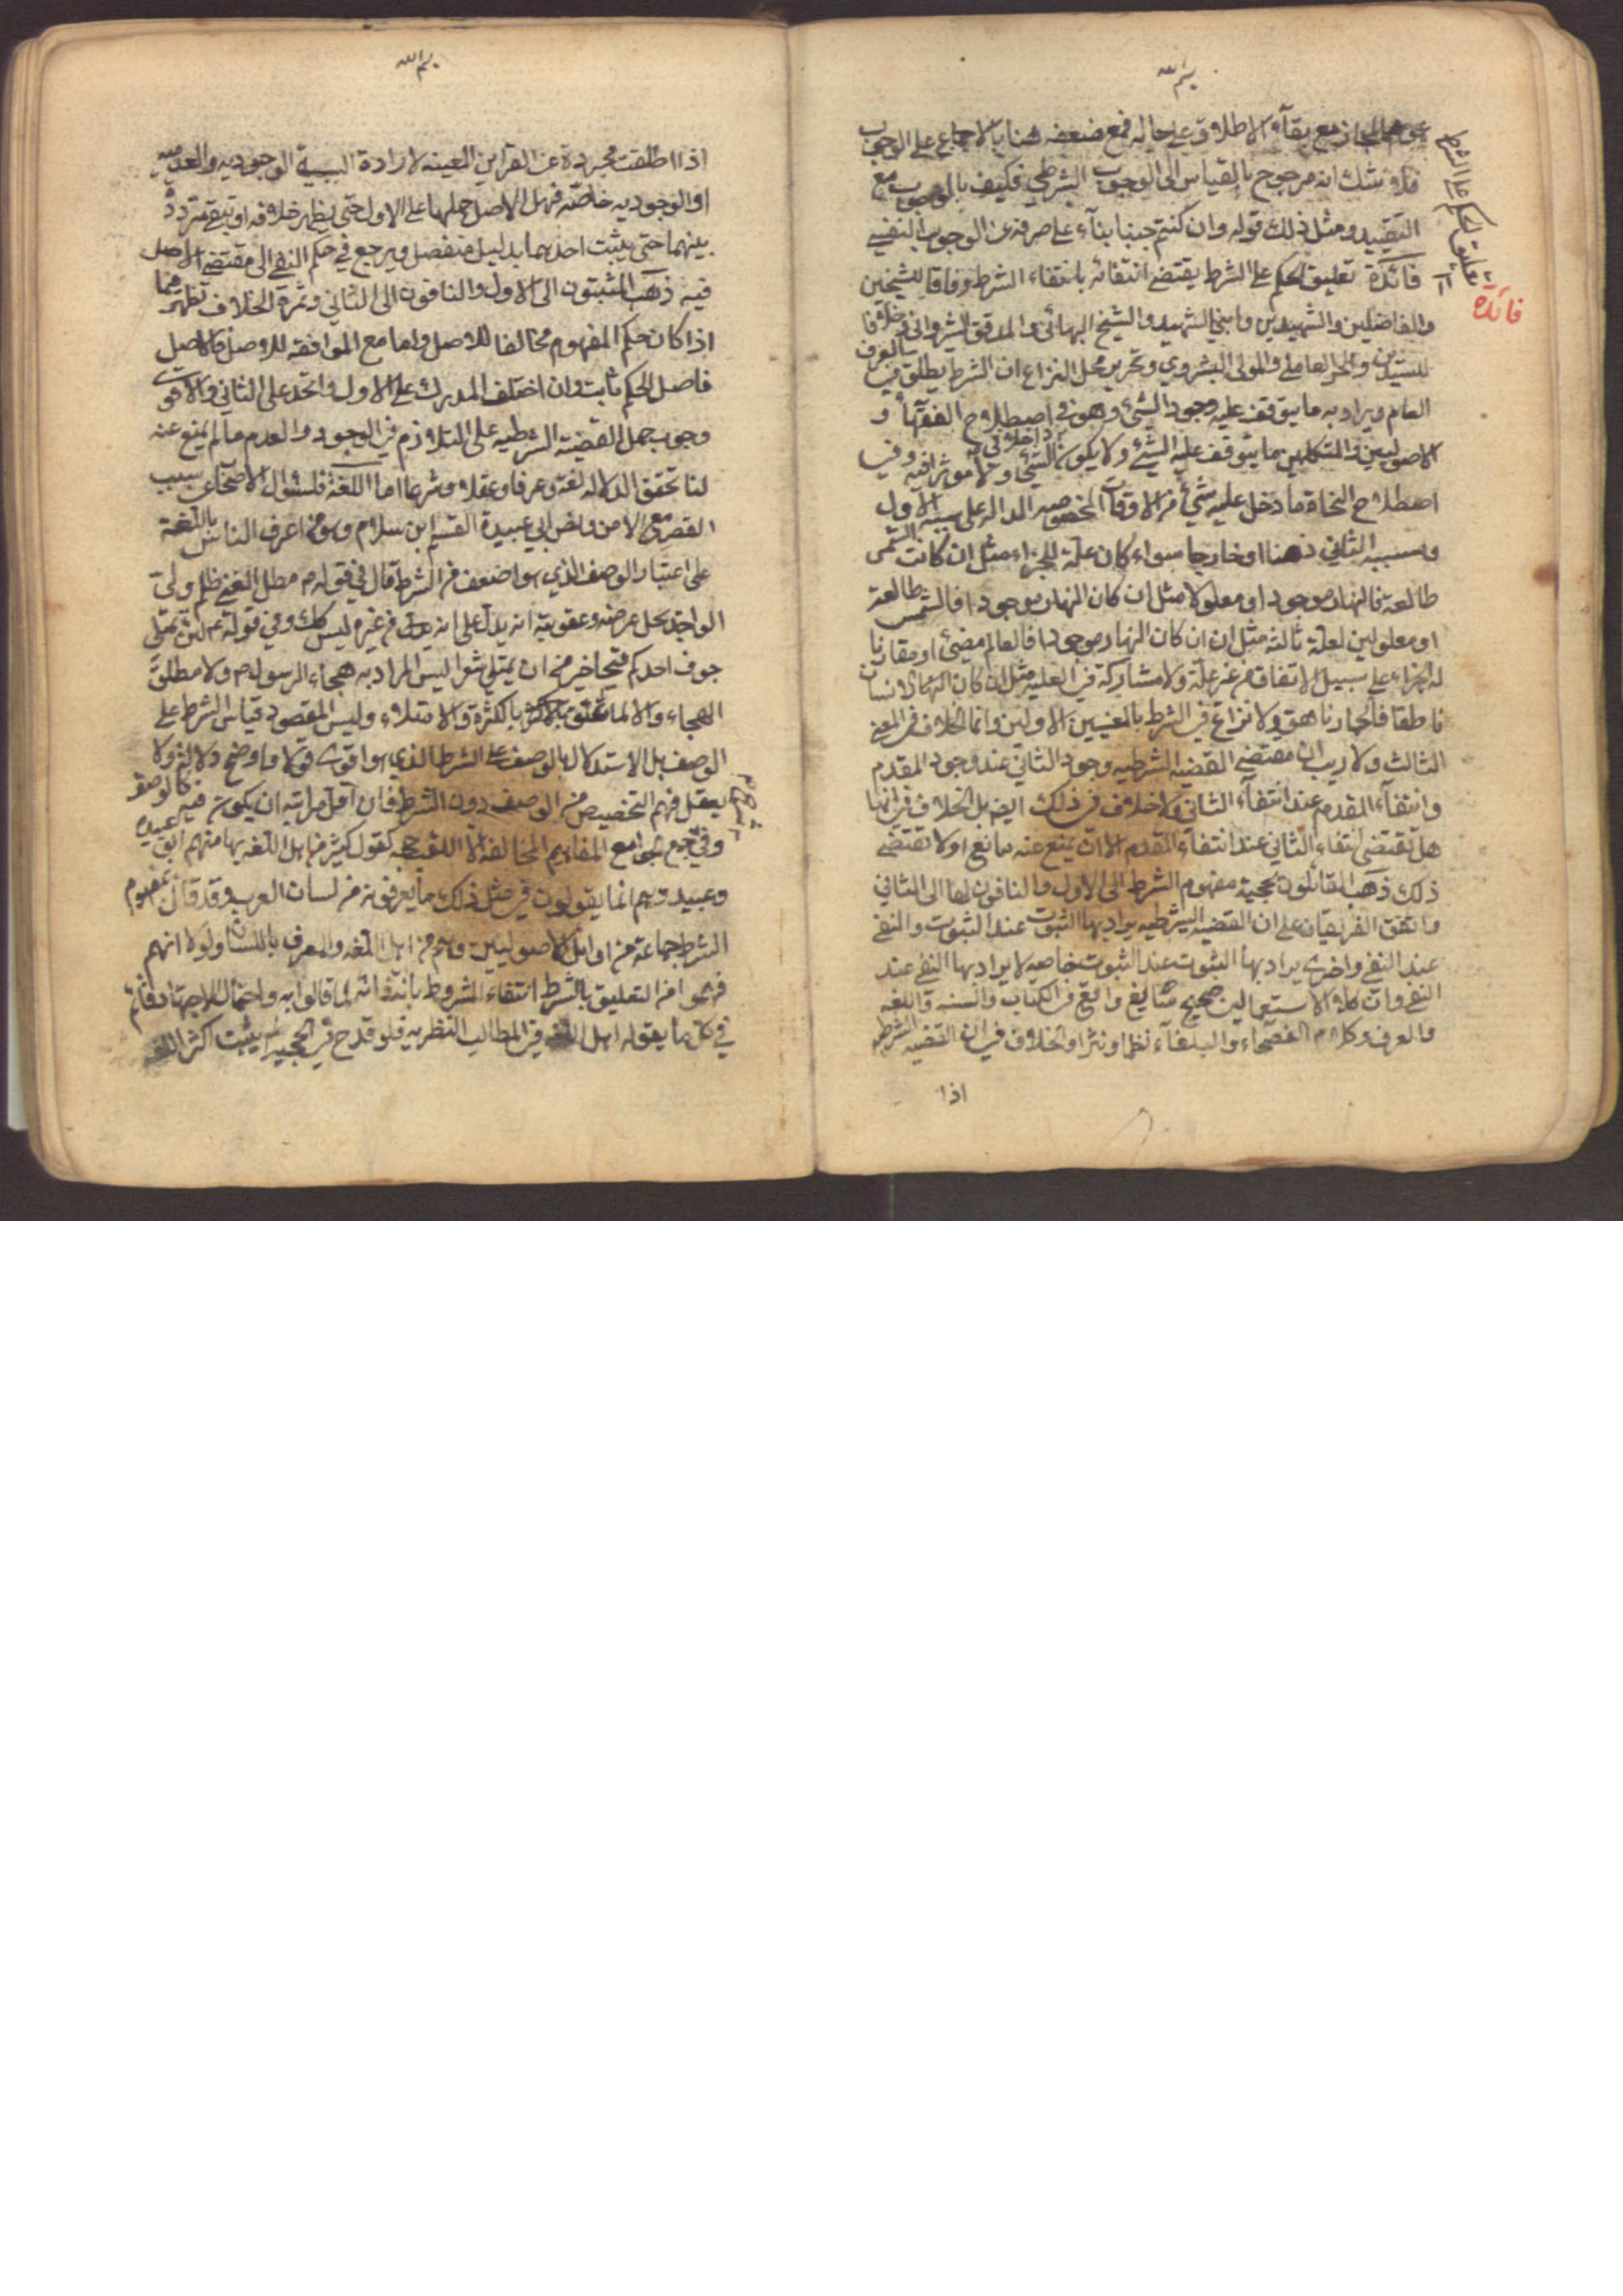 بسم الله
على المجاز مع بقاء الاطلاق على حاله فمع ضعفه هنا بالاجماع على الوجوب
فلا شك انه مرجوح بالقياس الى الوجوب الشرطي فكيف بالوجوب مع
التقييد ومثل ذلك قوله وان كنتم جنبا بناء على صرفه عن الوجوب النفسي
فائدة تعليق الحكم على الشرط يقتضي انتفائه بانتفاء الشرط وفاقا للشيخين
والفاضلين والشهيدين وابني الشهيد والشيخ البهائي والمدقق الشرواني وخلافا
للسيدين والحر العاملي والمولى البشروي وتحرير محل النزاع ان الشرط يطلق في العرف
العام ويراد به ما يتوقف عليه وجود الشيء وهو في اصطلاح الفقهاء و
الاصوليين والمتكلمين ما يتوقف عليه الشيء ولا يكون داخلا في الشيء ولا مؤثرا فيه وفي
اصطلاح النحاة ما دخل عليه شيء من الادوات المخصوصه الداله على سببية الاول
ومسببيه الثاني ذهنا او خارجا سواء كان علة للجزاء مثل ان كانت الشمس
طالعة فالنهار موجود او معلولا مثل ان كان النهار موجودا فالشمس طالعة
او معلولين لعلة ثالثة مثل ان كان النهار موجودا فالعالم مضيئ او مقارنا
للجزاء على سبيل الاتفاق من غير علة ولا مشاركة في العلية مثل ان كان الانسان
ناطقا فالحمار ناهق ولا نزاع في الشرط بالمعنيين الاولين وانما الخلاف في المعنى
الثالث ولا ريب ان مقتضى القضية الشرطيه وجود الثاني عند وجود المقدم
وانتفاء المقدم عند انتفاء الثاني ولا خلاف في ذلك ايضا بل الخلاف في انها
هل تقتضي انتفاء الثاني عند انتفاء المقدم الا ان يمنع عنه مانع او لا تقتضي
ذلك ذهب القائلون بحجية مفهوم الشرط الى الاول والنافون لها الى الثاني
واتفق الفريقان على ان القضيه الشرطيه يراد بها الثبوت عند الثبوت والنفي
عند النفي واخرى يراد بها الثبوت عند الثبوت خاصه لا يراد بها النفي عند
النفي وان كلا الاستعمالين صحيح شايع واقع في الكتاب والسنه واللغه
والعرف وكلام الفصحاء والبلغاء نظما ونثرا والخلاف في ان القضيه الشرطيه
اذا
تعليق الحكم على الشرط
فائدة
بسم الله
اذا اطلقت مجردة عن القراين المعينه لارادة السببية الوجوديه والعدميه
او الوجوديه خاصه فهل الاصل حملها على الاول حتى يظهر خلافه او تبقى مترددة
بينهما حتى يثبت احدهما بدليل منفصل ويرجع في حكم النفي الى مقتضى الاصل
فيه ذهب المثبتون الى الاول والنافون الى الثاني وثمرة الخلاف تظهر فيما
اذا كان حكم المفهوم مخالفا للاصل واما مع الموافقه للاصل فالاصل
فاصل الحكم ثابت وان اختلف المدرك على الاول واتحد على الثاني والاقوى
وجوب حمل القضية الشرطيه على التلازم في الوجود والعدم ما لم يمنع عنه
لنا تحقق الدلاله لغة وعرفا وعقلا وشرعا اما اللغة فلسئوال الاصحاب عن سبب
القصر مع الامن ونص ابي عبيدة القسم ابن سلام وهو من اعرف الناس باللغة
على اعتبار الوصف الذي هو اضعف من الشرط قال في قوله م مطل الغني ظلم ولي
الواجد يحل عرضه وعقوبته انه يدل على انه من غيره ليس كك وفي قوله لئن يمتلي
جوف احدكم قيحا خير من ان يمتلي شعرا ليس المراد به هجاء الرسول م ولا مطلق
الهجاء والا لما تعلق بالكثرة والامتلاء وليس المقصود قياس الشرط على
الوصف بل الاستدلال بالوصف على الشرط الذي هو اقوى قولا واوضح دلالة ولا
يعقل فهم التخصيص من الوصف دون الشرط فان اقل مراتبه ان يكون فيه كالوصف
وفي جمع الجوامع المفاهيم المخالفة الا اللقب حجه لقول كثير من اهل اللغه بها منهم ابو عبيده
وعبيد وهم انما يقولون في مثل ذلك ما يعرفونه من لسان العرب وقد قال بمفهوم
الشرط جماعة من اوائل الاصوليين وهم من اهل اللغه والمعرفه باللسان ولولا انهم
فهموا من التعليق بالشرط انتفاء المشروط بانتفائه لما قالوا به واحتمال الاجتهاد قائم
في كل ما يقوله اهل اللغه في المطالب النظريه فلو قدح في الحجيه لم يثبت اكثر اللغه